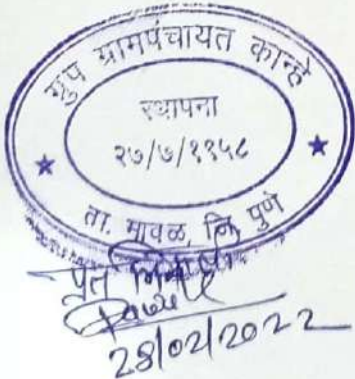 ग्रुप ग्रामपंचायत कान्हे
स्थापना
२७/७/१९५८
ता. मावळ, जि. पुणे
28/02/2022